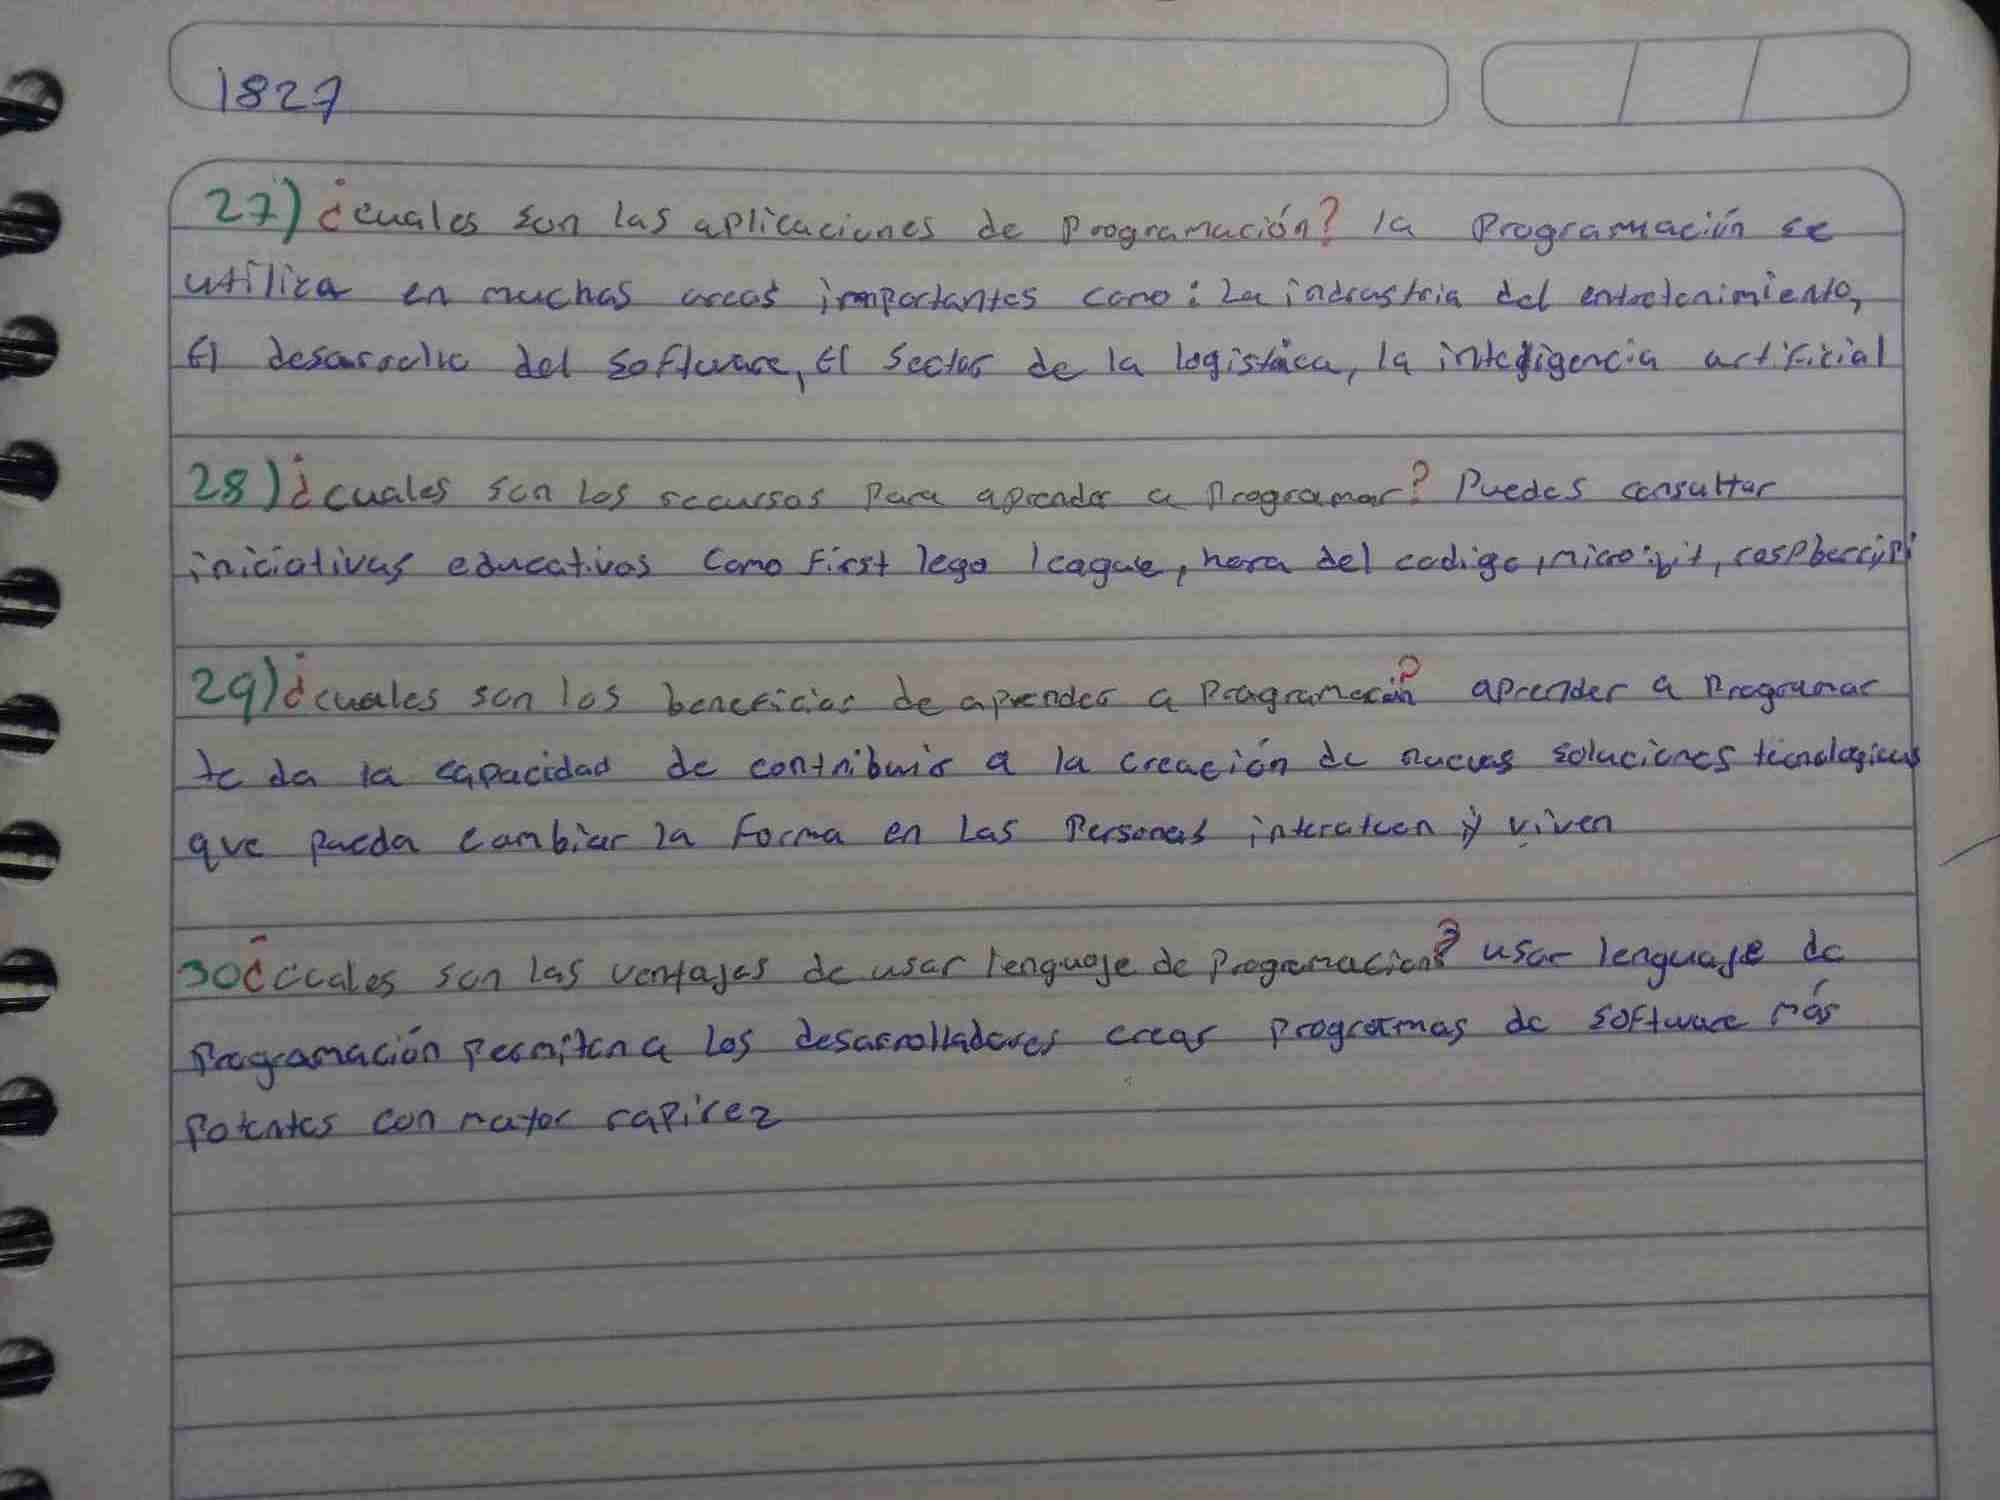 1827
27) ¿cuales son las aplicaciones de programación? la programación se
utiliza en muchas areas importantes como: La indrustria del entretenimiento,
El desarrollo del software, El sector de la logistica, la inteligencia artificial
28) ¿cuales son los recursos para aprender a programar? Puedes consultar
iniciativas educativas como First lego league, hora del codigo, micro:bit, raspberrypi
29) ¿cuales son los beneficios de aprender a programación? aprender a programar
te da la capacidad de contribuir a la creación de nuevas soluciones tecnologicas
que pueda cambiar la forma en las personas interatuen y viven
30 ¿cuales son las ventajas de usar lenguaje de programacion? usar lenguaje de
programación permiten a los desarrolladores crear programas de software más
potentes con mayor rapirez